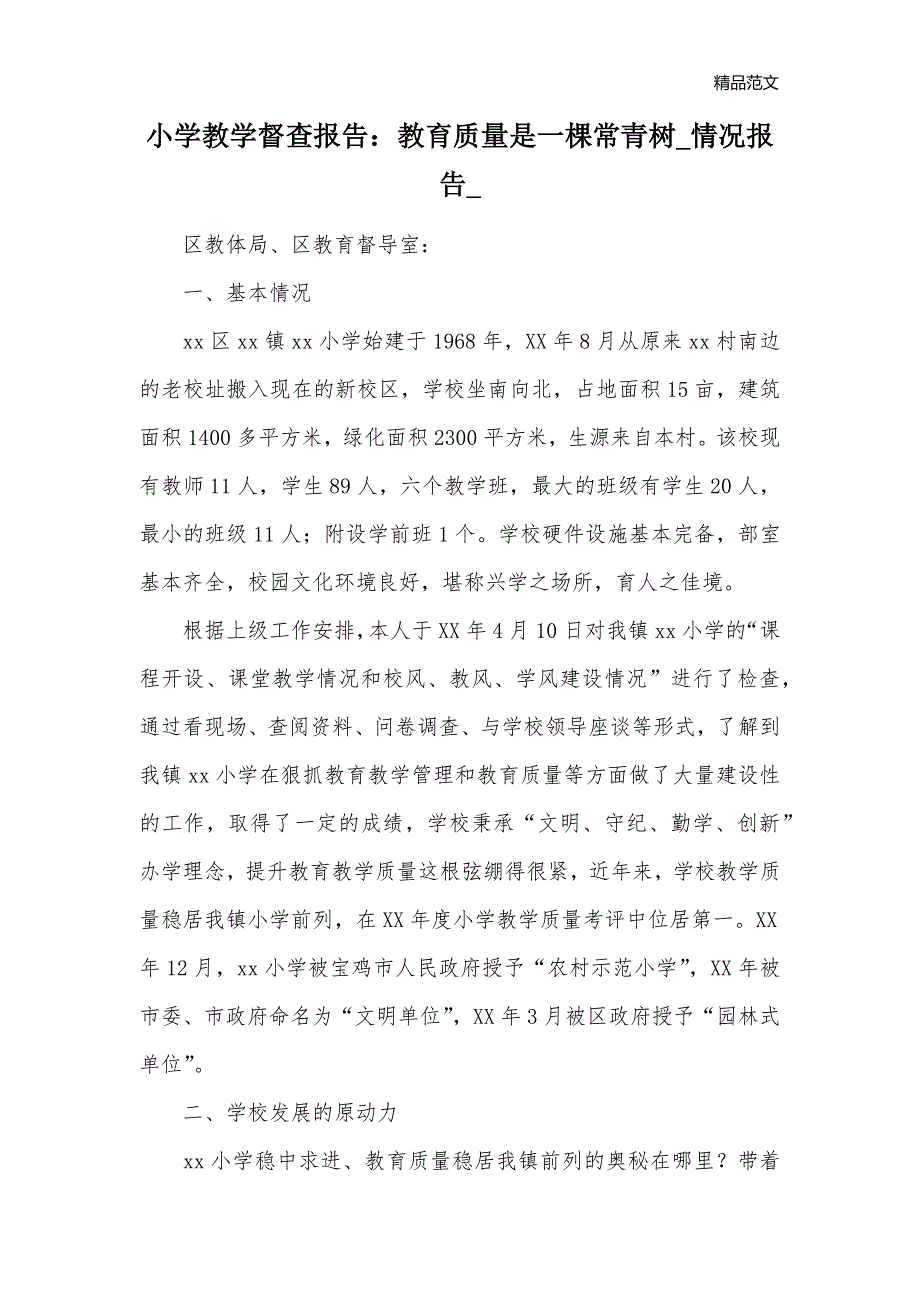 精品范文
小学教学督查报告：教育质量是一棵常青树_情况报
告_
区教体局、区教育督导室：
一、基本情况
xx 区 xx 镇 xx 小学始建于 1968 年，XX 年 8 月从原来 xx 村南边
的老校址搬入现在的新校区，学校坐南向北，占地面积 15 亩，建筑
面积 1400 多平方米，绿化面积 2300 平方米，生源来自本村。该校现
有教师 11 人，学生 89 人，六个教学班，最大的班级有学生 20 人，
最小的班级 11 人；附设学前班 1 个。学校硬件设施基本完备，部室
基本齐全，校园文化环境良好，堪称兴学之场所，育人之佳境。
根据上级工作安排，本人于 XX 年 4 月 10 日对我镇 xx 小学的“课
程开设、课堂教学情况和校风、教风、学风建设情况”进行了检查，
通过看现场、查阅资料、问卷调查、与学校领导座谈等形式，了解到
我镇 xx 小学在狠抓教育教学管理和教育质量等方面做了大量建设性
的工作，取得了一定的成绩，学校秉承“文明、守纪、勤学、创新”
办学理念，提升教育教学质量这根弦绷得很紧，近年来，学校教学质
量稳居我镇小学前列，在 XX 年度小学教学质量考评中位居第一。XX
年 12 月，xx 小学被宝鸡市人民政府授予“农村示范小学”，XX 年被
市委、市政府命名为“文明单位”，XX 年 3 月被区政府授予“园林式
单位”。
二、学校发展的原动力
xx 小学稳中求进、教育质量稳居我镇前列的奥秘在哪里？带着